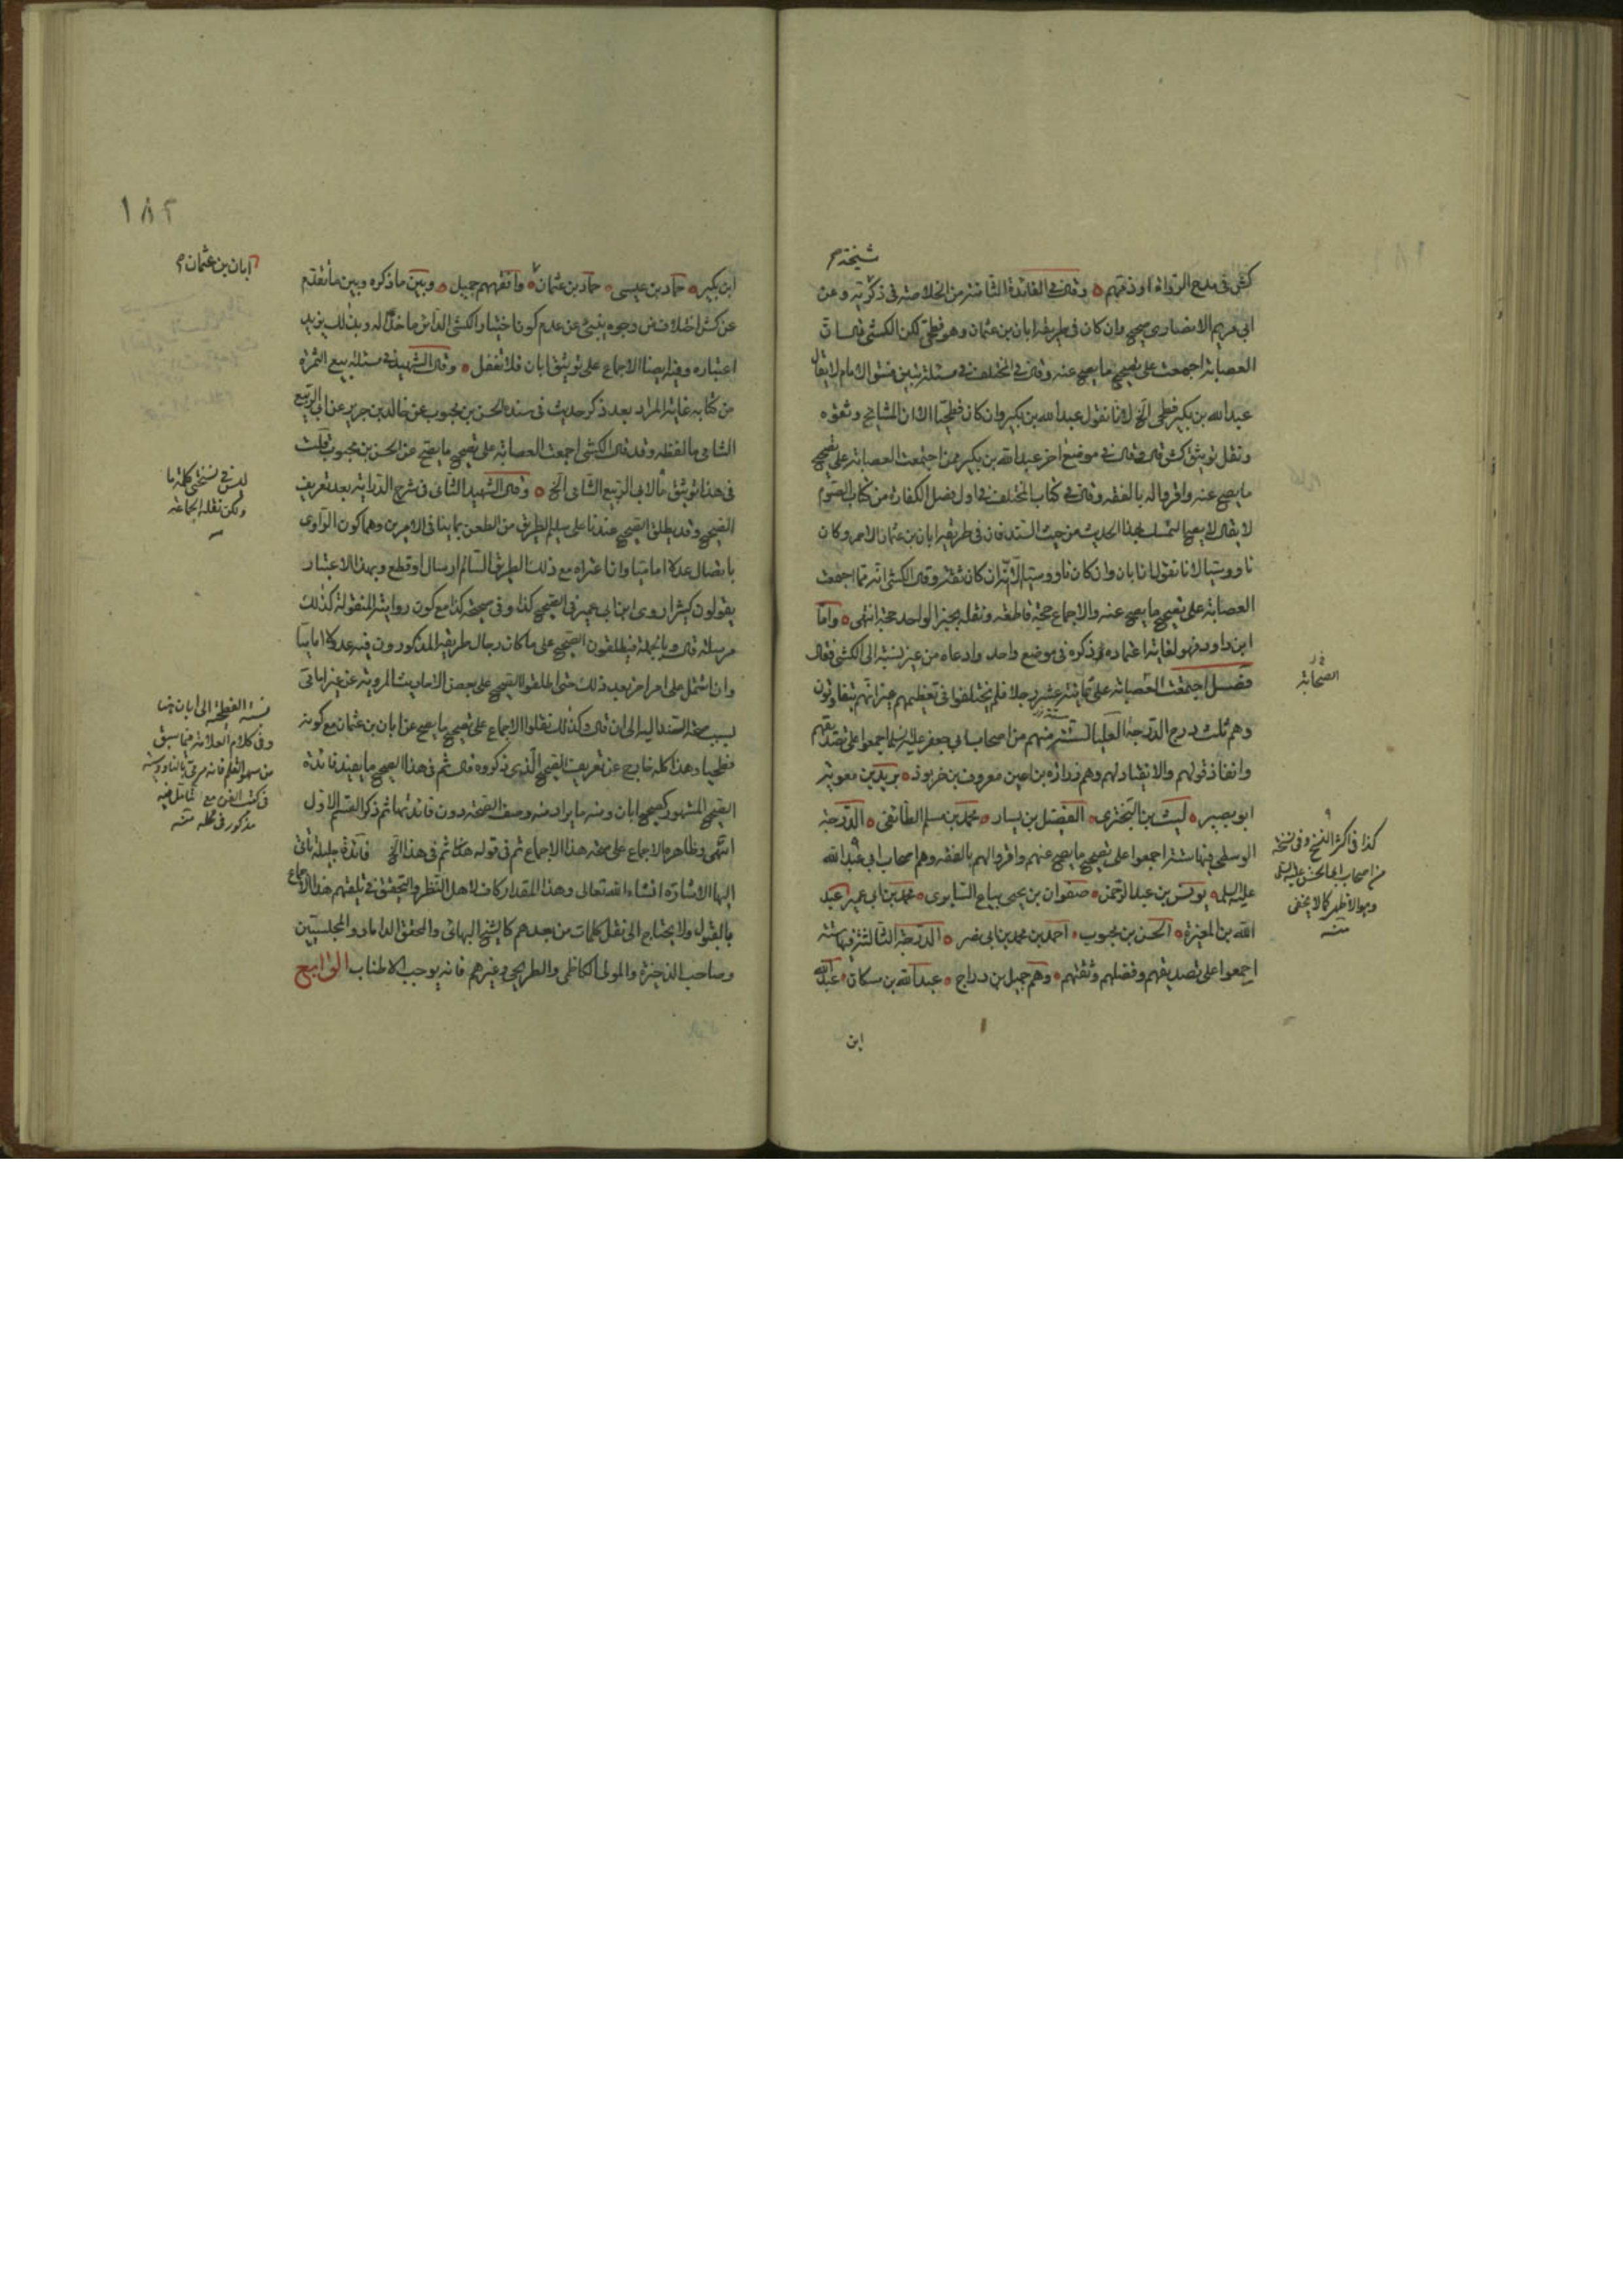 شيخة م
كش فى مدح الرواة او ذمهم وقال فى الفائدة الثامنة من الخلاصة فى ذكر وعن
ابى مريم الانصارى صحيح وان كان فى طريقه ابان بن عثمان وهو فطحى لكن الكشى قال ان
العصابة اجمعت على تصحيح ما يصح عنه وقال فى المختلف فى مسئلة تبين فسق الامام لا يقال
عبد الله بن بكير فطحى الخ لانا نقول عبد الله بن بكير وان كان فطحيا الا ان المشايخ وثقوه
ونقل توثيق كش قال قال فى موضع اخر عبد الله بن بكير ممن اجتمعت العصابة على تصحيح
ما يصح عنه واقروا له بالفقه وقال فى كتاب المختلف فى اول فصل الكفارة من كتاب الصوم
لا يقال لا يصح التمسك بهذا الحديث من حيث السند فان فى طريقه ابان بن عثمان الاحمر وكان
ناووسيا لانا نقول ان ابان وان كان ناووسيا الا انه كان ثقة وقال الكشى انه ممن اجمعت
العصابة على تصحيح ما يصح عنه والاجماع حجة قاطعة ونقله بخبر الواحد حجة انتهى واما
ابن داود فهو لغاية اعتماده ذكره فى موضع واحد وادعاه من غير نسبة الى الكشى فقال
فصل اجتمعت العصابة على ثمانية عشر رجلا فلم يختلفوا فى تعظيمهم غير انهم يتفاوتون
وهم ثلث درج الدرجة العليا ستة منهم من اصحاب ابى جعفر عليه السلم اجمعوا على تصديقهم
وانفاذ قولهم والانقياد لهم وهم زرارة بن اعين معروف بن خربوذ بريد بن معوية
ابو بصير ليث بن البخترى الفضيل بن يسار محمد بن مسلم الطائفى الدرجة
الوسطى فيها ستة اجمعوا على تصحيح ما يصح عنهم واقروا لهم بالفقه وهم اصحاب ابى عبد الله
عليه السلم يونس بن عبد الرحمن صفوان بن يحيى بياع السابرى محمد بن ابى عمير عبد
الله بن المغيرة الحسن بن محبوب احمد بن محمد بن ابى نصر الدرجة الثالثة فيها ستة
اجمعوا على تصديقهم وفضلهم وثقتهم وهم جميل بن دراج عبد الله بن مسكان عبد الله
ابن
الصحابة
كذا فى اكثر النسخ وفى نسخة
من اصحاب ابى الحسن عليه السلم
وهو الاظهر كما لا يخفى
منه
١٨٢
ابان بن عثمان م
ابن بكير حماد بن عيسى حماد بن عثمان وافقههم جميل وبين ما ذكره وبين ما تقدم
عن كش اختلاف من وجوه ينبئ عن عدم كون اختيار الكشى ماخذا له وبذلك يزيد
اعتباره وفيه ايضا الاجماع على توثيق ابان فلا تغفل وقال الشهيد فى مسئلة بيع الثمرة
من كتابه غاية المراد بعد ذكر حديث فى سنده الحسن بن محبوب عن خالد بن جرير عن ابى الربيع
الشامى ما لفظه وقد قال الكشى اجمعت العصابة على تصحيح ما يصح عن الحسن بن محبوب قلت
فى هذا توثيق ما لابى الربيع الشامى الخ وقال الشهيد الثانى فى شرح الدراية بعد تعريف
الصحيح وقد يطلق الصحيح عندنا على سليم الطريق من الطعن بما ينافى الامرين وهما كون الراوى
باتصال عدلا اماميا وان اعتراه مع ذلك الطريق السالم ارسال او قطع وبهذا الاعتبار
يقولون كثيرا روى ابن ابى عمير فى الصحيح كذا وفى صحيحه كذا مع كون روايته المنقولة كذلك
مرسلة قال وبالجملة فيطلقون الصحيح على ما كان رجال طريقه المذكورون فيه عدلا اماميا
وان اشتمل على امر اخر بعد ذلك حتى اطلقوا الصحيح على بعض الاحاديث المروية عن غير امامى
بسبب صحة السند اليه الى ان قال وكذلك نقلوا الاجماع على تصحيح ما يصح عن ابان بن عثمان مع كونه
فطحيا وهذا كله خارج عن تعريف الصحيح الذى ذكروه قال ثم فى هذا الصحيح ما يفيد فائدة
الصحيح المشهور كصحيح ابان ومنه ما يراد منه وصف الصحة دون فائدتها ثم ذكر القسم الاول
انتهى وظاهره الاجماع على صحة هذا الاجماع ثم فى قوله ثم فى هذا الخ فائدة جليلة تاتى
اليها الاشارة انشاء الله تعالى وهذا المقدار كاف لاهل النظر والتحقيق فى تلقيهم هذا الاجماع
بالقبول ولا يحتاج الى نقل كلمات من بعدهم كالشيخ البهائى والمحقق الداماد والمجلسيين
وصاحب الذخيرة والمولى الكاظمى والطريحى وغيرهم فانه يوجب الاطناب الرابع
ليس فى نسختى كلمة ما
ولكن نقله الجماعة
نسبة الفطحية الى ابان هنا
وفى كلام العلامة فيما سبق
من سهو القلم فانه مرمى بالناووسية
فى كتب الفن مع تامل فيه
مذكور فى محله منه